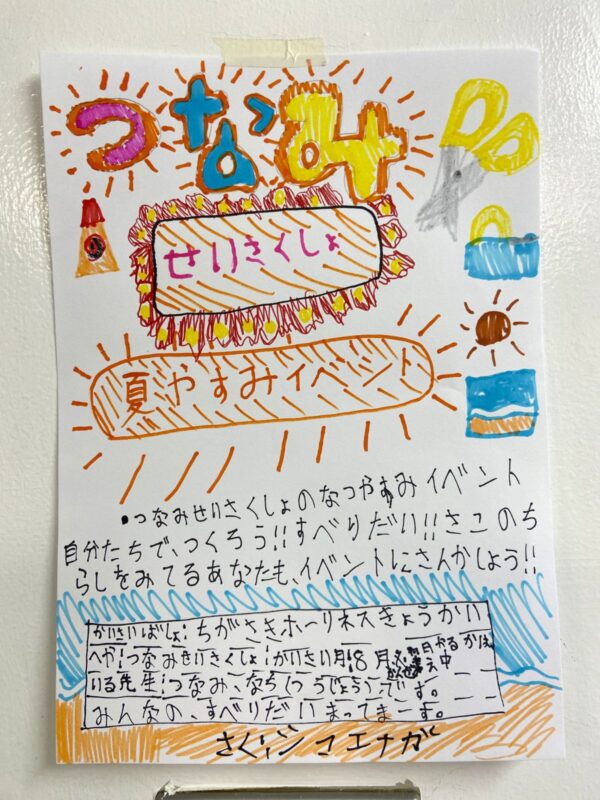 つなみ
せいさくしょ
夏やすみイベント
・つなみせいさくしょのなつやすみイベント
自分たちで、つくろう!!すべりだい!!さこのち
らしをみてるあなたも、イベントにさんかしよう!!
かいさいばしょ:ちがさきホーリネスきょうかい
へや:つなみせいさくしょ:かいさい月:8月 日やるかは
いる先生:つなみ、なら です。
みんなの、すべりだいまってまーす。
さくジンコエナガ